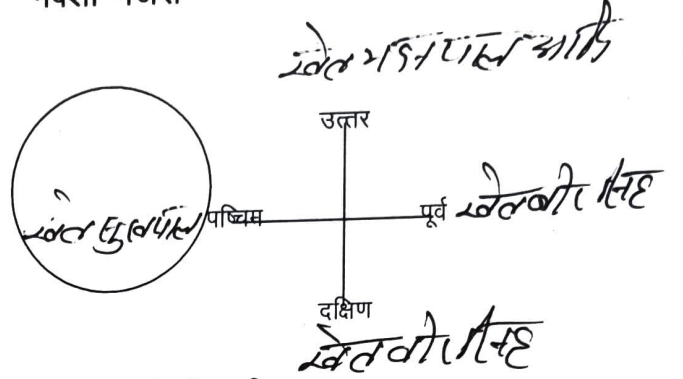 खेत यशपाल आदि
उत्तर
खेत सुखपाल पश्चिम पूर्व खेत वीर सिंह
दक्षिण
खेत वीर सिंह